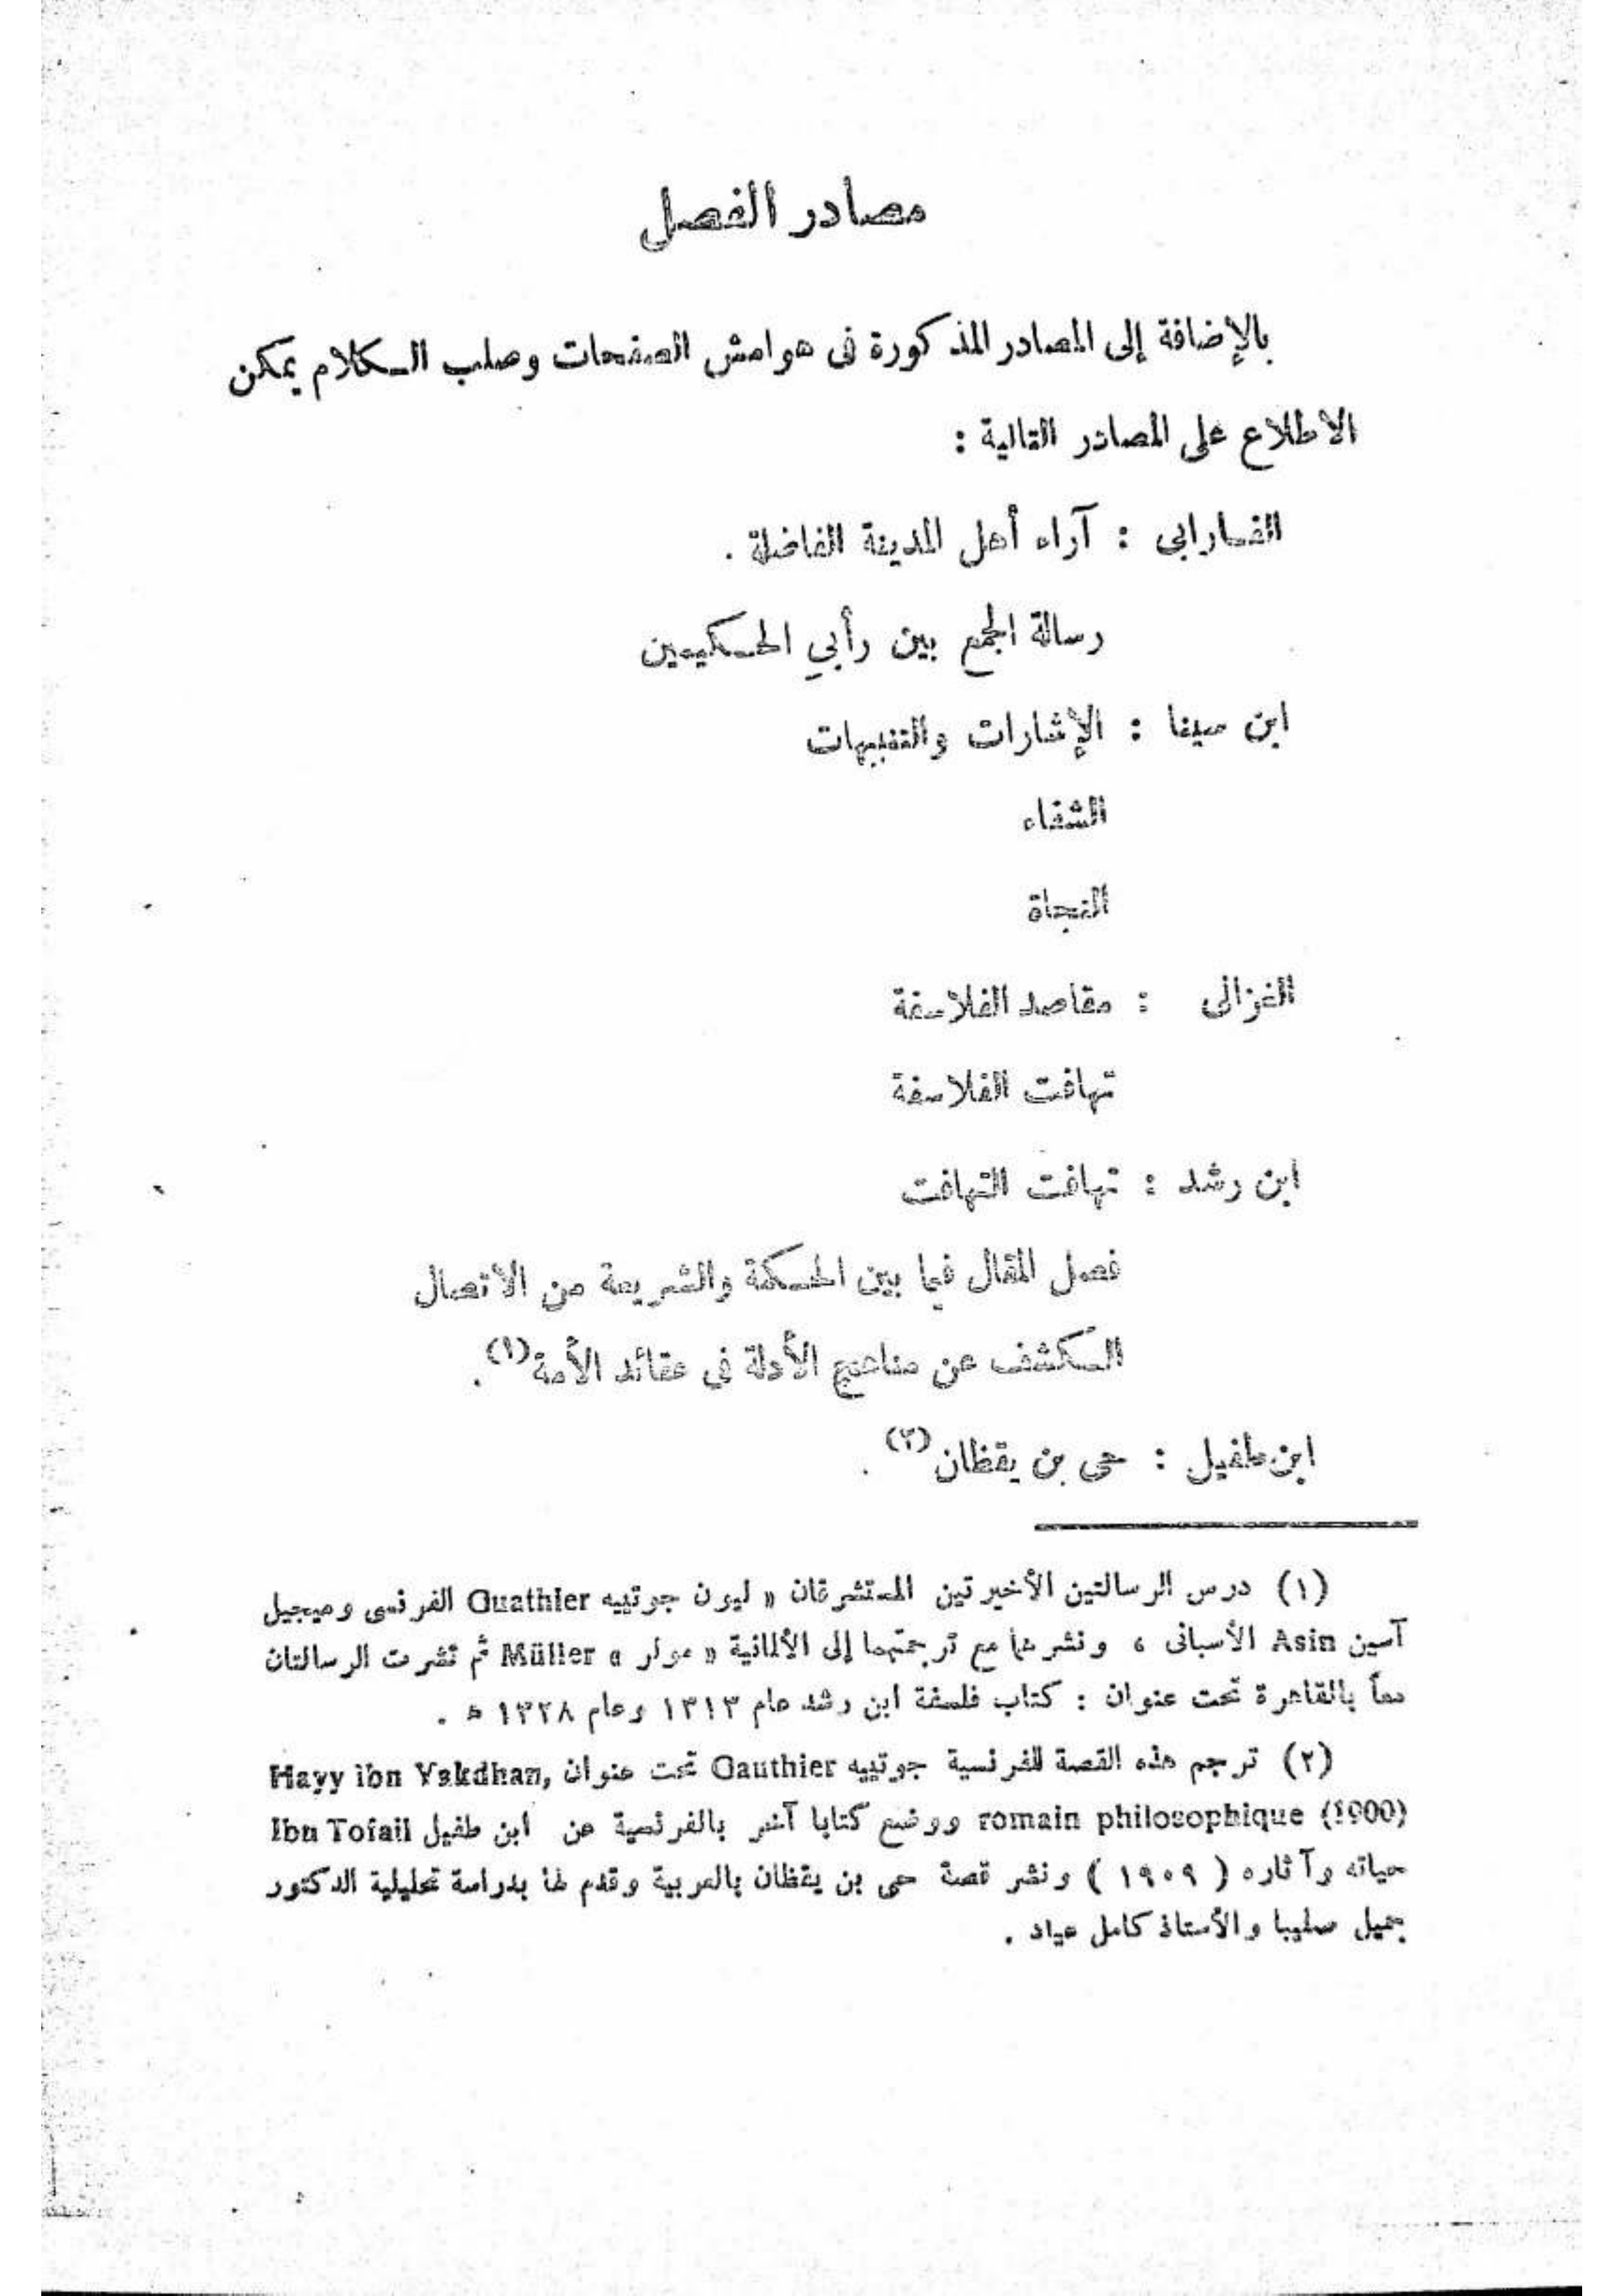 مصادر الفصل
بالإضافة إلى المصادر المذكورة فى هوامش الصفحات وصلب الكلام يمكن
الاطلاع على المصادر التالية :
الفارابى : آراء أهل المدينة الفاضلة .
رسالة الجمع بين رأيي الحكيمين
ابن سينا : الإشارات والتنبيهات
الشفاء
النجاة
الغزالى : مقاصد الفلاسفة
تهافت الفلاسفة
ابن رشد : تهافت التهافت
فصل المقال فيما بين الحكمة والشريعة من الاتصال
الكشف عن مناهج الأدلة فى عقائد الأمة(١) .
ابن طفيل : حى بن يقظان(٢) .
(١) درس الرسالتين الأخيرتين المستشرقان « ليون جوتييه Guathier الفرنسى وميجيل
آسين Asin الأسبانى ، ونشرهما مع ترجمتهما إلى الألمانية « مولر » Müller ثم نشرت الرسالتان
معاً بالقاهرة تحت عنوان : كتاب فلسفة ابن رشد عام ١٣١٣ وعام ١٣٢٨ ه .
(٢) ترجم هذه القصة للفرنسية جوتييه Gauthier تحت عنوان Hayy ibn Yakdhan,
romain philosophique (1900) ووضع كتابا آخر بالفرنسية عن ابن طفيل Ibn Tofail
حياته وآثاره ( ١٩٠٩ ) ونشر قصة حى بن يقظان بالعربية وقدم لها بدراسة تحليلية الدكتور
جميل صليبا والأستاذ كامل عياد .